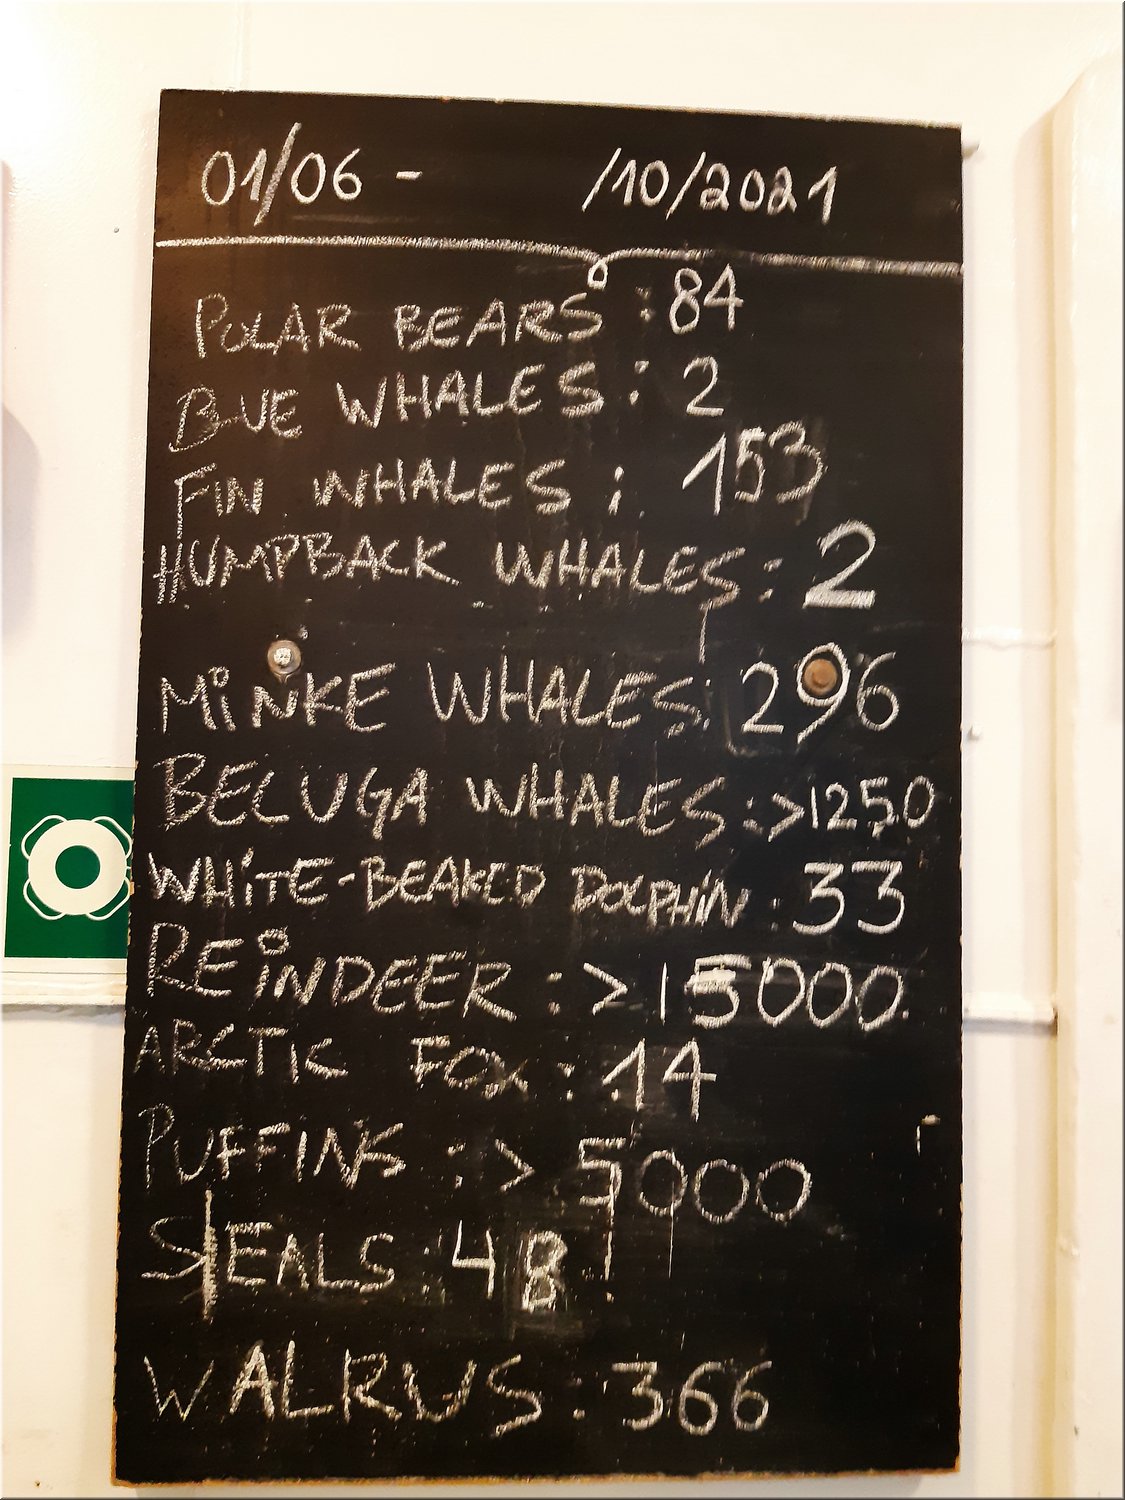 01/06 - /10/2021
POLAR BEARS : 84
BLUE WHALES : 2
FIN WHALES : 153
HUMPBACK WHALES : 2
MINKE WHALES : 296
BELUGA WHALES : >1250
WHITE-BEAKED DOLPHIN : 33
REINDEER : >15000
ARCTIC FOX : 14
PUFFINS : > 5000
SEALS : 48
WALRUS : 366